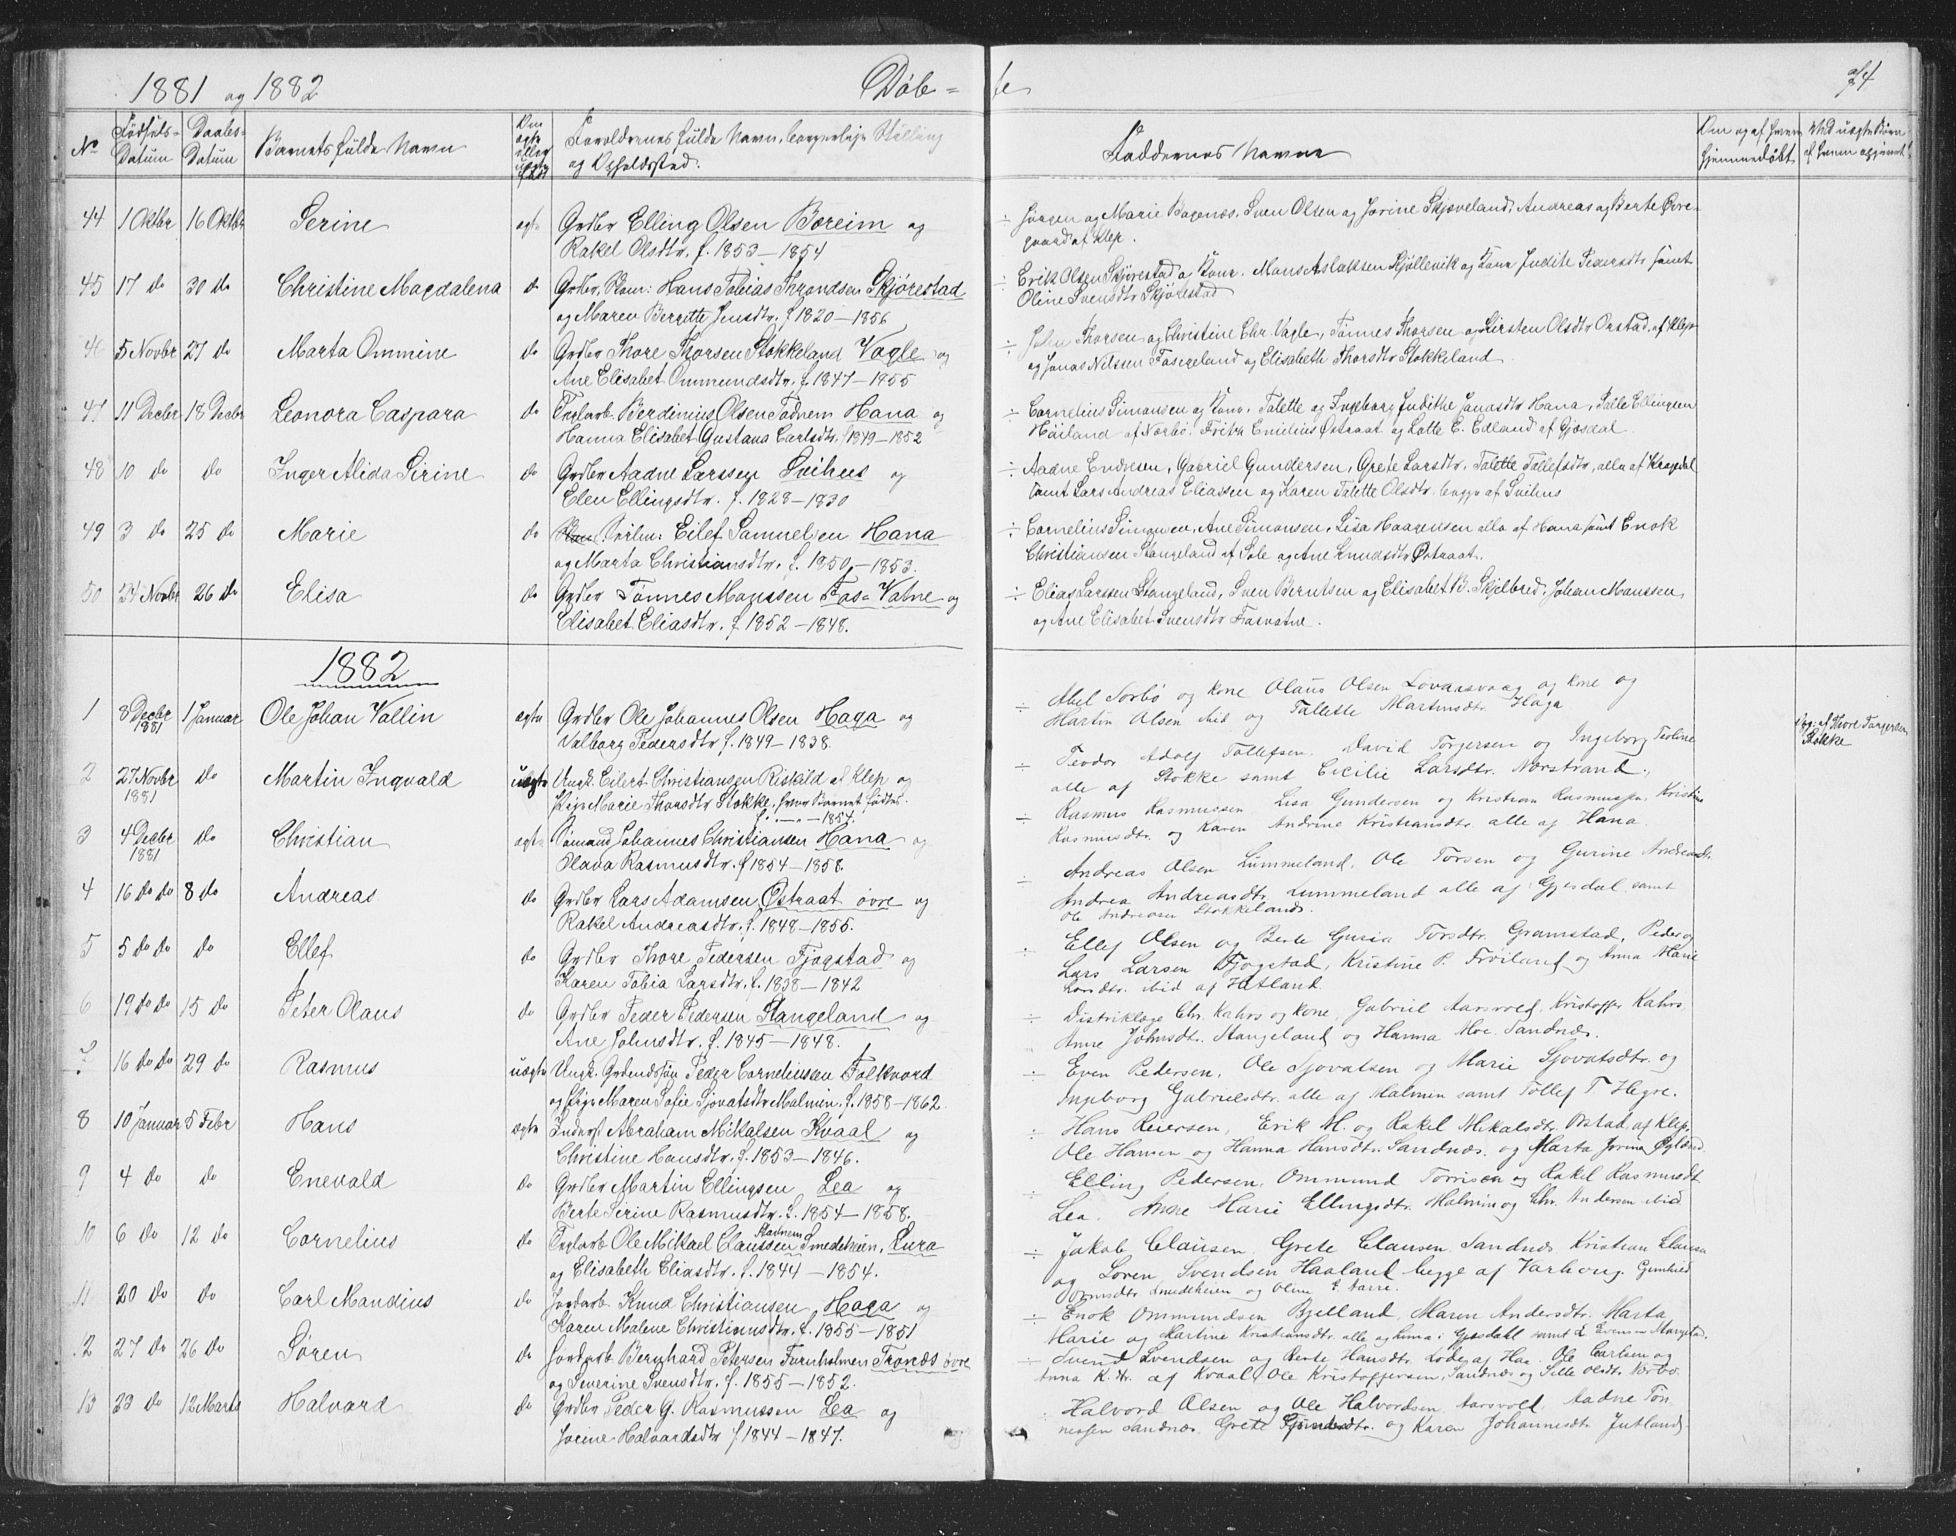 1881 og 1882 Døbte 74
No Fødsels-Datum Daabs-Datum Barnets fulde Navn Om ægte eller uægte født Forældrenes fulde Navn, borgerlige Stilling og Opholdssted. Faddernes Navne Om og af hvem hjemmedøbt Ved uægte Børn af hvem opgivet
44 1 Oktbr 16 Oktbr Serine ægte Grdbr Elling Olsen Boreim og
Rakel Olsdtr. f. 1853 – 1854
÷ Jørgen og Marie Bogenæs, Sven Olsen og Jorine Skjæveland, Andreas og Berte Øvre-
gaard af Klep.
45 17 do 30 do Christine Magdalena do Grdbr. Hans Tobias Throndsen Skjørestad
og Maren Bergitte Jensdtr. f 1820 – 1856
÷ Erik Olsen Skjørestad o Kone. Mons Aslaksen Kjøllevik og Kone Judite Pedersdtr samt
Oline Svensdtr Skjørestad
46 5 Novbr 27 do Marta Ommine do Grdbr Thore Thorsen Stokkeland Vagle og
Ane Elisabet Ommundsdtr. f. 1847 – 1855
÷ John Thorsen og Christine Chr. Vagle, Tønnes Thorsen og Kirsten Olsdtr Orstad af Klep
og Jonas Nilsen Fosegeland og Elisabeth Thorsdtr Stokkeland.
47 11 Decbr 18 Decbr Leonora Caspara do Teglarb. Berdinius Olsen Todnem Hana og
Hanna Elisabet Gustava Carlsdtr. f 1849 – 1852
÷ Cornelius Simonsen og Kone, Talette og Ingeborg Judithe Jonasdtr Hana, Salle Ellingsen
Høiland af Norbø. Fritz Emilius Østraat og Lotte E. Edland af Gjæsdal.
48 10 do do Inger Alida Sirine do Grdbr Aadne Larssen Svihus og
Elen Ellingsdtr. f. 1828 – 1830
÷ Aadne Endresen, Gabriel Gundersen, Grete Larsdtr. Talette Tollefsdtr, alle af Kragedal
samt Lars Andreas Eliassen og Karen Talette Olsdtr. begge af Svihus
49 3 do 25 do Marie do Eilef Samuelsen Hana
og Marta Christiansdtr. f. 1850 – 1853.
÷ Cornelius Simonsen, Ane Simonsen, Lisa Haagensen alle af Hana samt Enok
Christiansen Stangeland af Sole og Ane Knudsdtr Østraat.
50 24 Novbr 26 do Elisa do Grdbr Tønnes Monssen Fos= Vatne og
Elisabet Eliasdtr. f. 1852 – 1848.
÷ Elias Larssen Stangeland, Sven Berntsen og Elisabet B. Skjelbred, Johan Monssen,
og Ane Elisabet Svensdtr Fosvatne.
1882
1 8 Decbr 1881 1 Januar Ole Johan Vallin ægte Grdbr Ole Johannes Olsen Haga og
Valborg Pedersdtr f. 1849 – 1838.
÷ Abel Sorbø og kone Olaus Olsen Lovaasvaag og kone og
Martin Olsen ibid og Tallette Martinsdtr. Haga
2 27 Novbr 1881 do Martin Ingvald uægte Ungk. Eilert Christiansen Riskild af Klep og
Pige Marie Thorsdtr Stokke, hvor Barnet fødtes.
f. – 1854.
÷ Teodor Adolf Tollefsen. David Torgersen og Ingeborg Teoline
alle af Stokke samt Cicilie Larsdtr. Norstrand.
opg: af Thore Torgersen Stokke
3 4 Decbr 1881 do Christian ægte Sømand Johannes Christiansen Hana og
Olava Rasmusdtr. f 1854 – 1858.
÷ Rasmus Rasmussen Lisa Gundersen og Kristian Rasmussen, Kristine
Rasmusdtr. og Karen Andrine Kristiansdtr. alle af Hana.
4 16 do do 8 do Andreas do Grdbr Lars Adamsen Østraat øvre og
Rakel Andreasdtr. f. 1848 – 1855.
÷ Andreas Olsen Lummeland, Ole Torsen og Gurine Andreasdtr.
Andrea Andreasdtr. Lummeland alle af Gjesdal samt
Ole Andreasen Stokkeland.
5 5 do do do Ellef do Grdbr Thore Pedersen Fjogstad og
Karen Tobia Larsdtr. f. 1838 – 1842
÷ Ellef Olsen og Berte Gusia Torsdtr. Gramstad, Peder og
Lars Larsen Fjogstad, Kristine P. Frøiland og Anna Marie
Larsdtr. ibid af Hetland.
6 19 do do 15 do Peter Olaus do Grdbr Peder Pedersen Stangeland og
Ane Johnsdtr. f. 1845 – 1848.
÷ Distriklæge Chr. Kahrs og kone, Gabriel Aarsvold, Kristoffer Kahrs
Anne Johnsdtr. Stangeland og Hanna Moe, Sandnæs.
7 16 do do 29 do Rasmus uægte Ungk. Grdmdssøn Peder Corneliussen Folkvord
og Pige Maren Sofie Sjovatsdtr Malmin. f. 1858 – 1862.
÷ Even Pedersen, Ole Sjovatsen og Marie Sjovatsdtr. og
Ingeborg Gabrielsdtr. alle af Malmin samt Tollef T. Hegre.
8 10 Januar 5 Febr Hans ægte Inderst Abraham Mikalsen Kvaal og
Christine Hansdtr. f. 1853 – 1846.
÷ Hans Reiersen, Erik M. og Rakel Mikalsdtr. Orstad, af Klep,
Ole Hansen og Hanna Hansdtr. Sandnæs. og Marta Jorine
9 4 do do Enevald do Grdbr Martin Ellingsen Lea og
Berte Serine Rasmusdtr. f. 1854 – 1858.
÷ Elling Pedersen, Ommund Torrisen og Rakel Rasmusdtr
Lea. Anne Marie Ellingsdtr. Malmin og Chr. Andersen ibid
10 6 do 12 do Cornelius do Teglarb Ole Mikael Claussen Stadnem Smedeheien, Lura
og Elisabeth Eliasdtr. f. 1844 – 1854.
÷ Jakob Clausen, Grete Clausen. Sandnæs Kristian Clausen
og Soren Svendsen Haaland begge af Varhoug. Gunhild
Ormsdtr. Smedeheien og Oline T. Aarre.
11 20 do do Carl Mandius do Jordarb. Knud Christiansen Haga og
Karen Malene Christiansdtr. f. 1855 – 1851
÷ Enok Ommundsen Bjelland, Maren Andersdtr. Marta
Marie og Martine Kristiansdtr. alle i Gjesdal samt
12 27 do 26 do Søren do Jordarb Bernhard Petersen Furnholmen Tronæs øvre
og Severine Svensdtr. f. 1855 – 1852.
÷ Svend Svendsen og Berte Hansdtr. Lode af Haa. Ole Carlsen og
Anna K. dtr. af Kvaal, Ole Kristoffersen, Sandnæs og Sille Olsdtr. Norbø.
13 23 do 12 Marts Halvard do Grdbr Peder G. Rasmussen Lea og
Jorine Halvardsdtr f 1844 – 1847.
÷ Halvord Olsen og Ole Halvordsen Aarsvold, Aadne Tøn-
nessen Sandnæs. Grete og Karen Johannesdtr Jutland